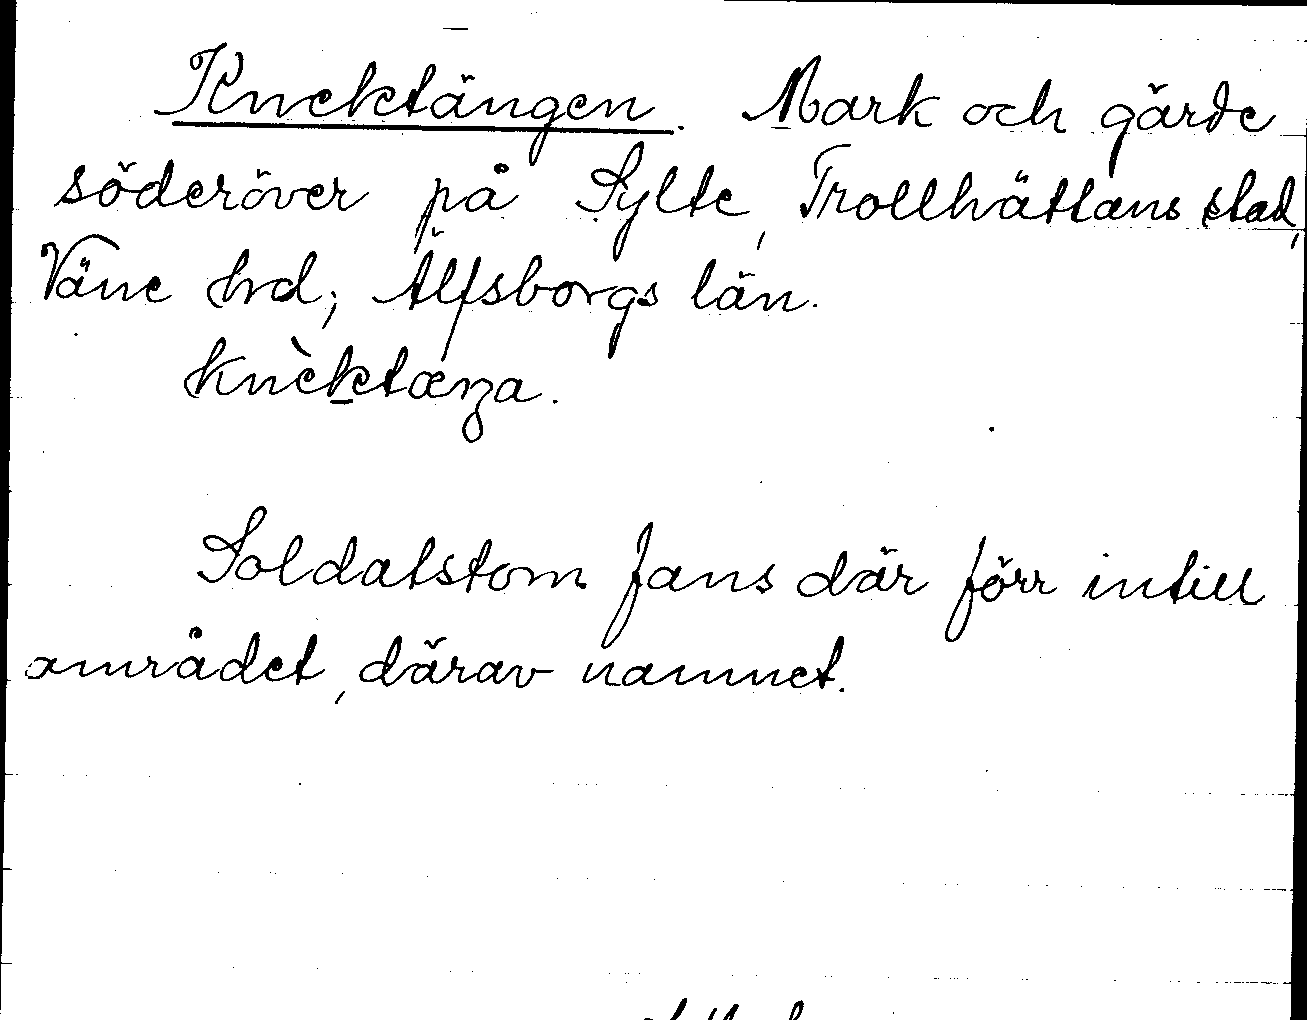 Knektängen. Mark och gärde
söderöver på Sylte, Trollhättans stad,
Väne hrd; Älfsborgs län.
knèktæŋa.
Soldatstom fans där förr intill
området, därav namnet.